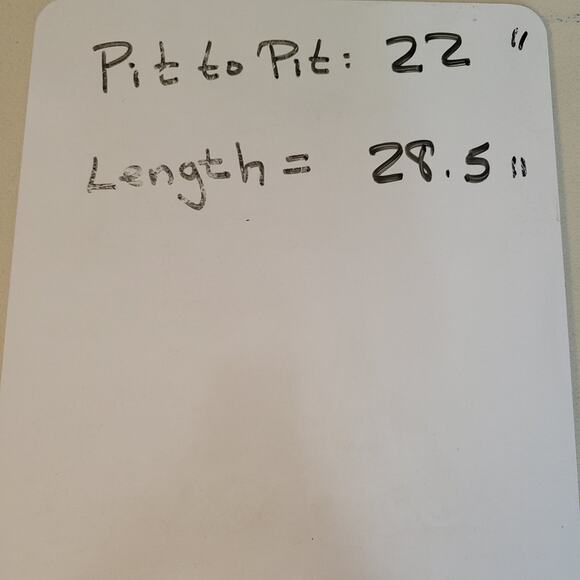 Pit to Pit: 22 "
Length = 28.5 "